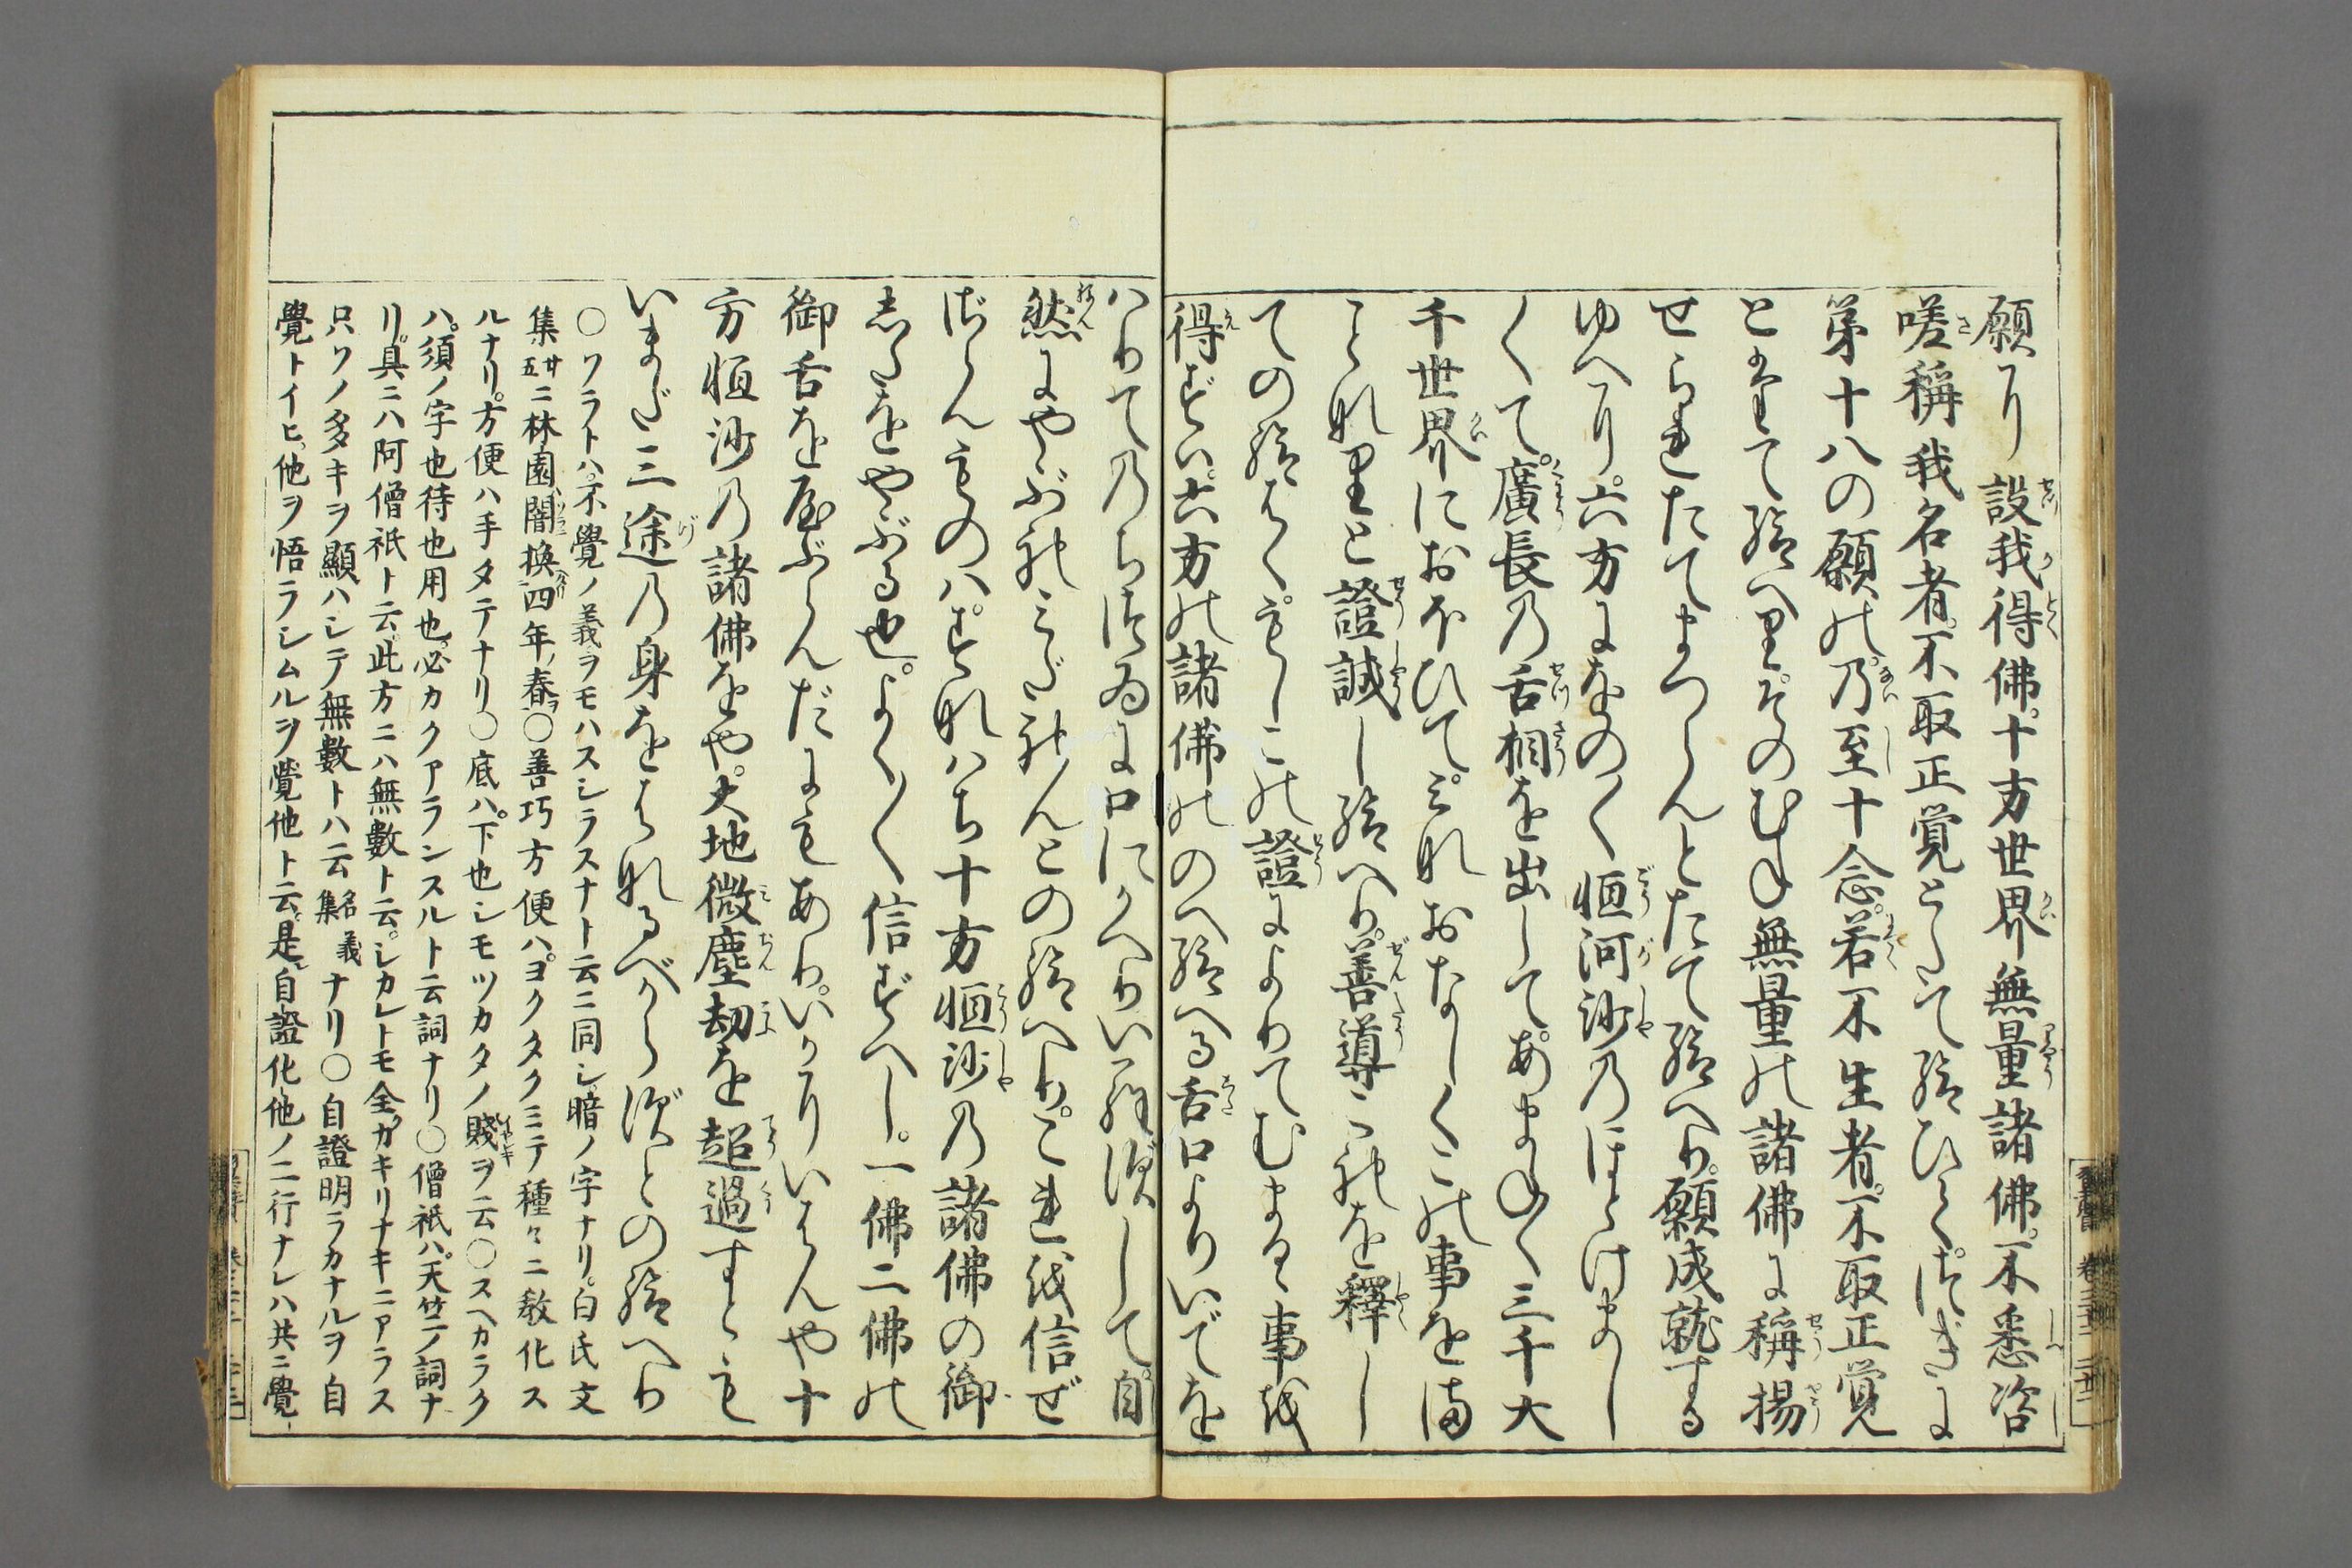 願に設我得佛十方世界無量諸佛不悉咨
嗟稱我名者不取正覚とたて給ひて次ぎに
第十八の願の乃至十念若不生者不取正覚
とたて給へりそのむね無量の諸佛に稱揚
せられたてまつらんとたて給へり願成就する
ゆへに六方にをの〱恒河沙のほとけまし
〱て廣長の舌相を出してあまねく三千大
千世界におほひてみなおなしくこの事をま
ことなりと證誠し給へり善導これを釋し
ての給はくもしこの證によりてむまるゝ事を
得ずは六方の諸佛ののへ給へる舌口よりいでを
はりてのちつゐに口にかへりいらずして自
然にやぶれみだれんとの給へりこれを信ぜ
ざらんものハすなハち十方恒沙の諸佛の御
したをやぶる也よく〱信ずへし一佛二佛の
御舌をやぶらんだにもありいかにいはんや十
方恒沙の諸佛をや大地微塵劫を超過すとも
いまだ三途の身をはなるべからずとの給へり
〇ワラトハ不覺ノ義ヲモハスシラスナト云ニ同シ暗ノ字ナリ白氏文
集廿五ニ林園闇換四年春〇善巧方便ハヨクタクミニテ種々ニ教化ス
ルナリ方便ハ手タテナリ〇底ハ下也シモツカタノ賤ヲ云〇スヘカラク
ハ須ノ字也待也用也必カクアランスルト云詞ナリ〇僧祇ハ天竺ノ詞ナ
リ具ニハ阿僧祇ト云此方ニハ無數ト云シカレトモ全カキリナキニアラス
只ソノ多キヲ顯ハシテ無數トハ云名義集ナリ〇自證明ラカナルヲ自
覺トイヒ他ヲ悟ラシムルヲ覺他ト云是自證化他ノ二行ナレハ共ニ覺